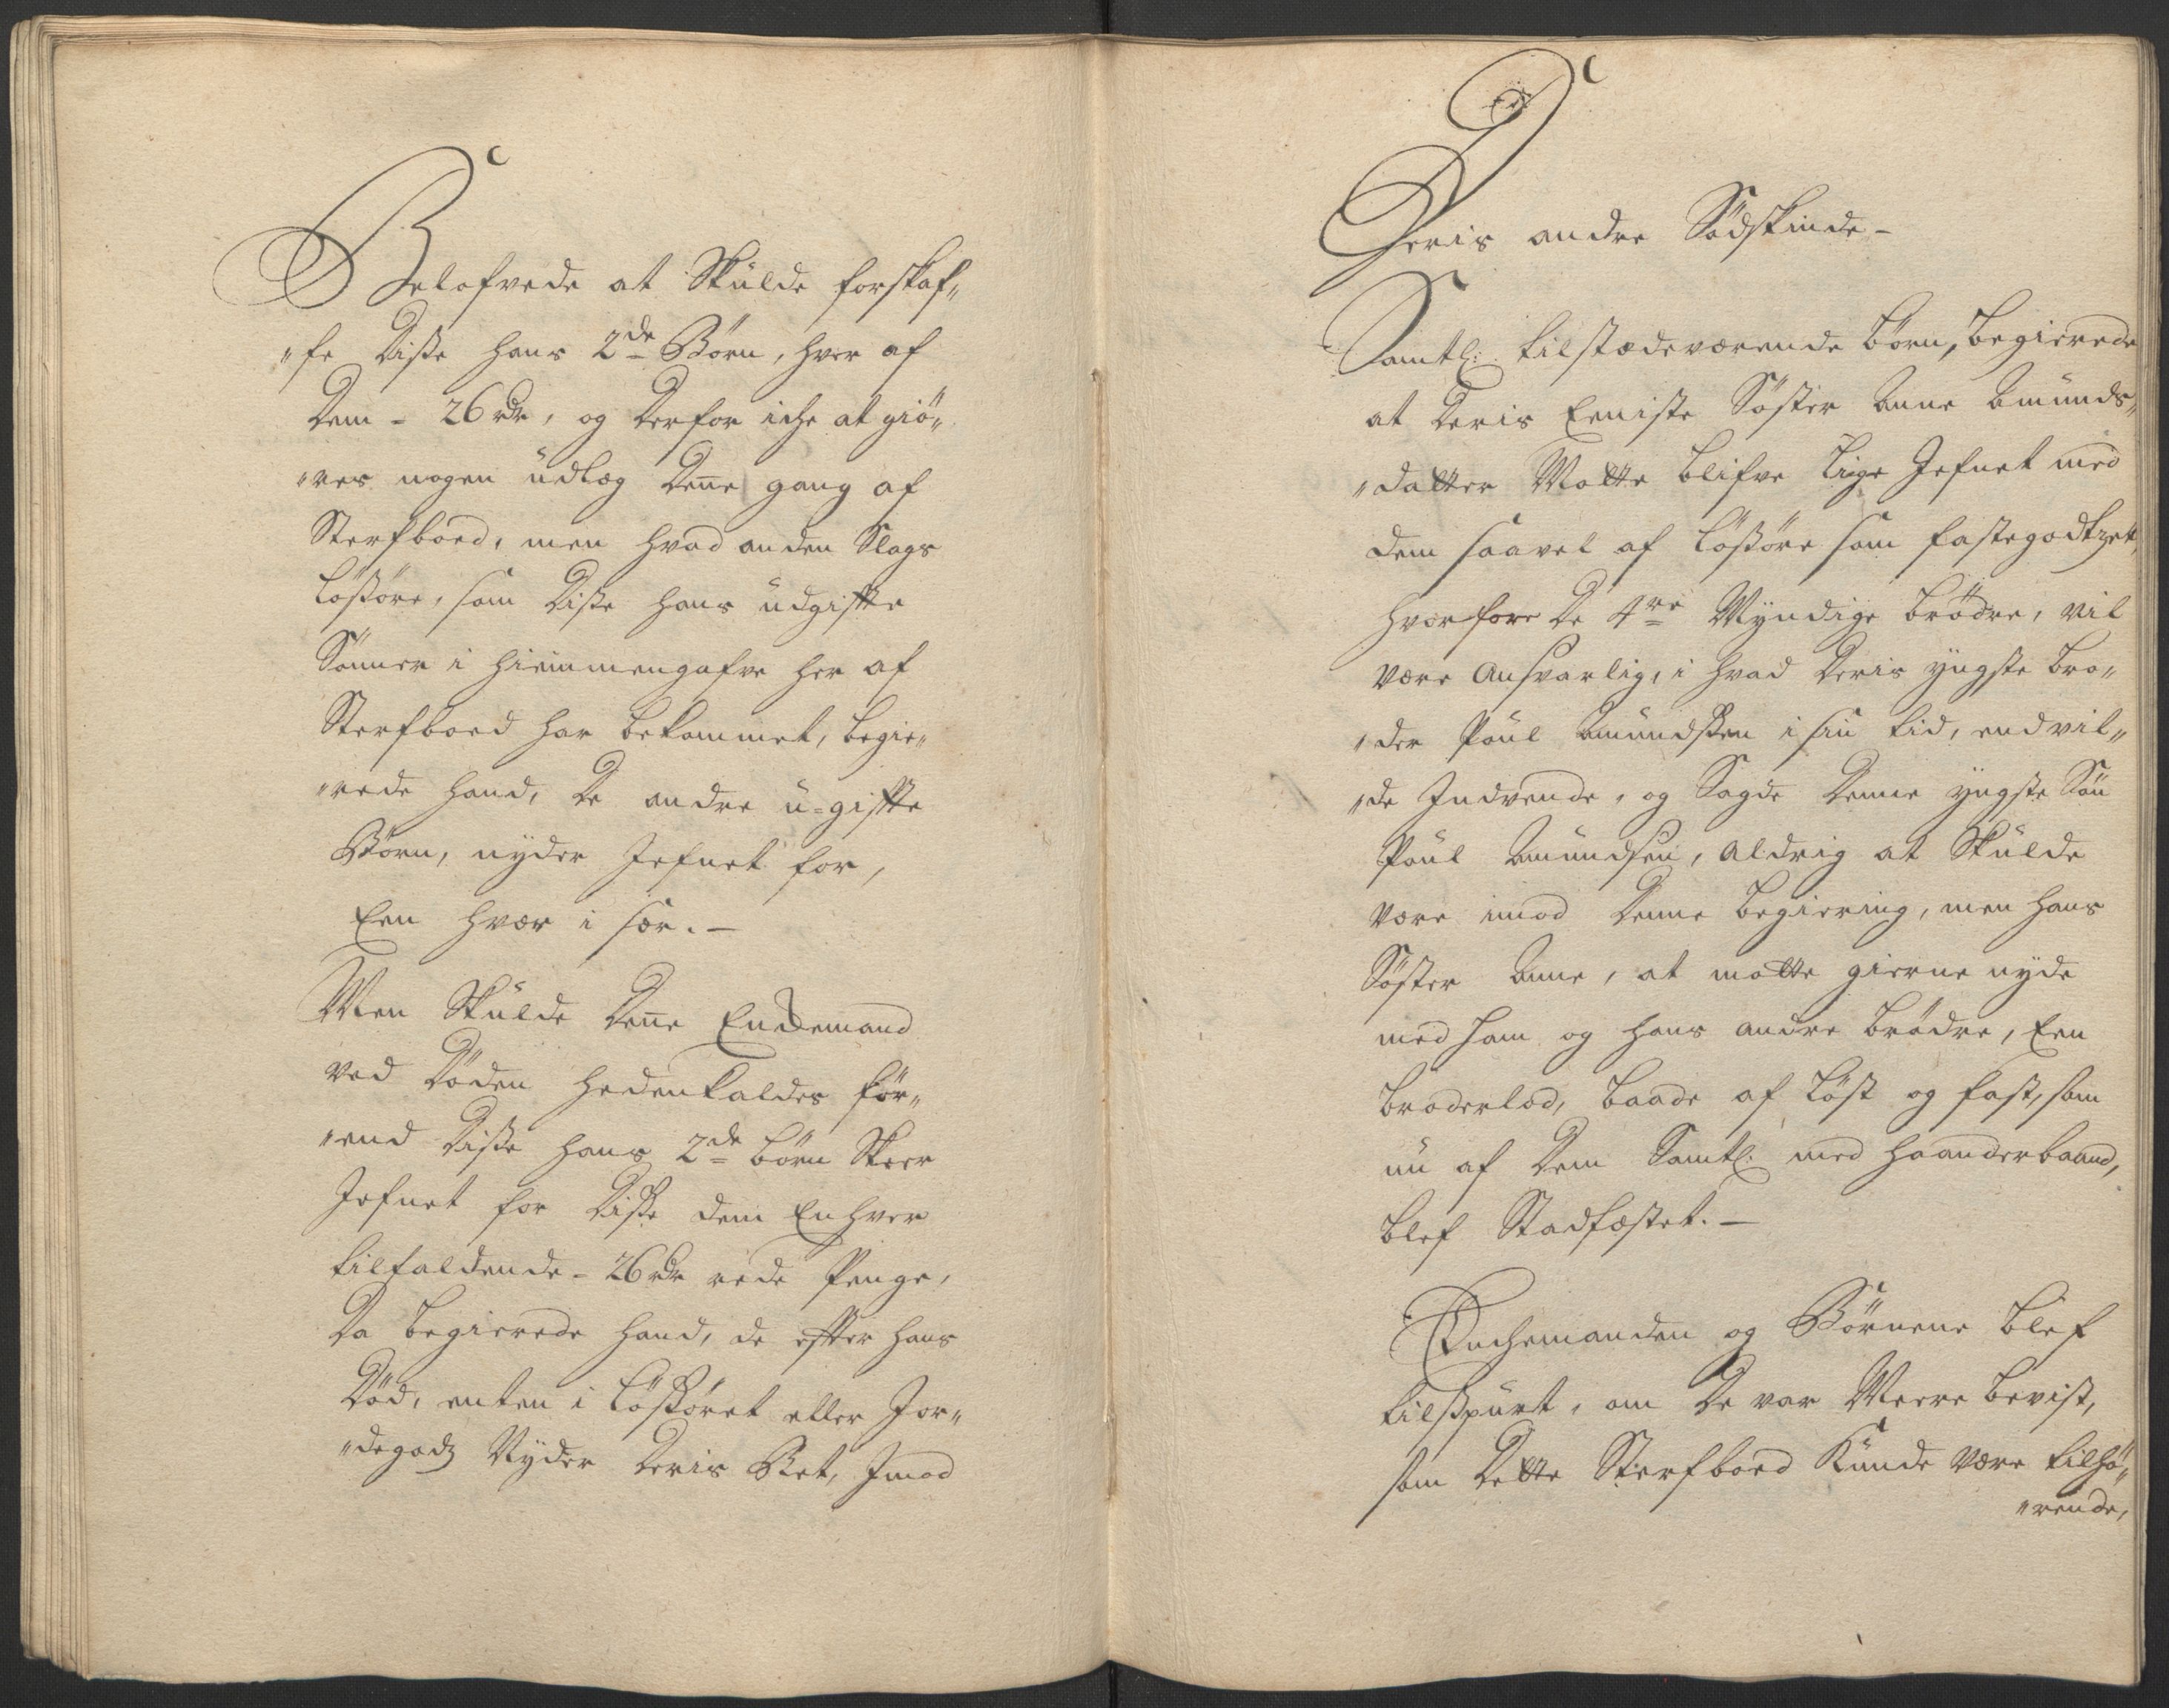 Belofvede at Skulde forskaf„
„fe Disse hans 2de Børn, hver af
Dem - 26 rdr, og Derfor iche at giø„
„res nogen udlæg Denne gang af
Sterfboed, men hvad anden Slags
Løssøre, som Disse hans udgifte
Sønner i hiemmengafve her af
Sterfboed har bekommet, begie„
„rede hand, De andre u-gifte
Børn, nyder Jefnet for,
Een hvær i sær. -
Men Skulde Denne Enckemand
ved Døden hedenkaldes før„
„end Disse hans 2de børn Skeer
Jefnet for Disse dem Enhver
tilfaldende - 26 rdr rede Penge,
Da begierede hand, de efter hans
Død, enten i Løssøret eller Jor„
„degodz Nyder Deris Ret, Jmod
Deris andre Sødskinde -
Samtl: tilstædeværende børn, begierede
at Deris Eeniste Søster Anne Amunds„
„datter Motte blifve lige Jefnet med
dem saavel af Løssøre som fastegodtzet,
hvorfore De 4re Myndige brødre, vil
være Ansvarlig, i hvad Deris yngste bro„
„der Poul Amundssen i sin tid, endvil„
„de Indvende, og Sagde Denne yngste Søn
Poul Amundsen, aldrig at Skulde
være imod Denne begiering, men hans
Søster Anne, at motte gierne nyde
med ham og hans andre brødre, Een
broderlod, baade af løst og fast, som
nu af Dem Samtl: med haanderbaand,
blef Stadfæstet. -
Enchemanden og Børnene blef
tilspurt, om De var Meere bevist,
som Dette Sterfboed Kunde være tilhø„
„rende,